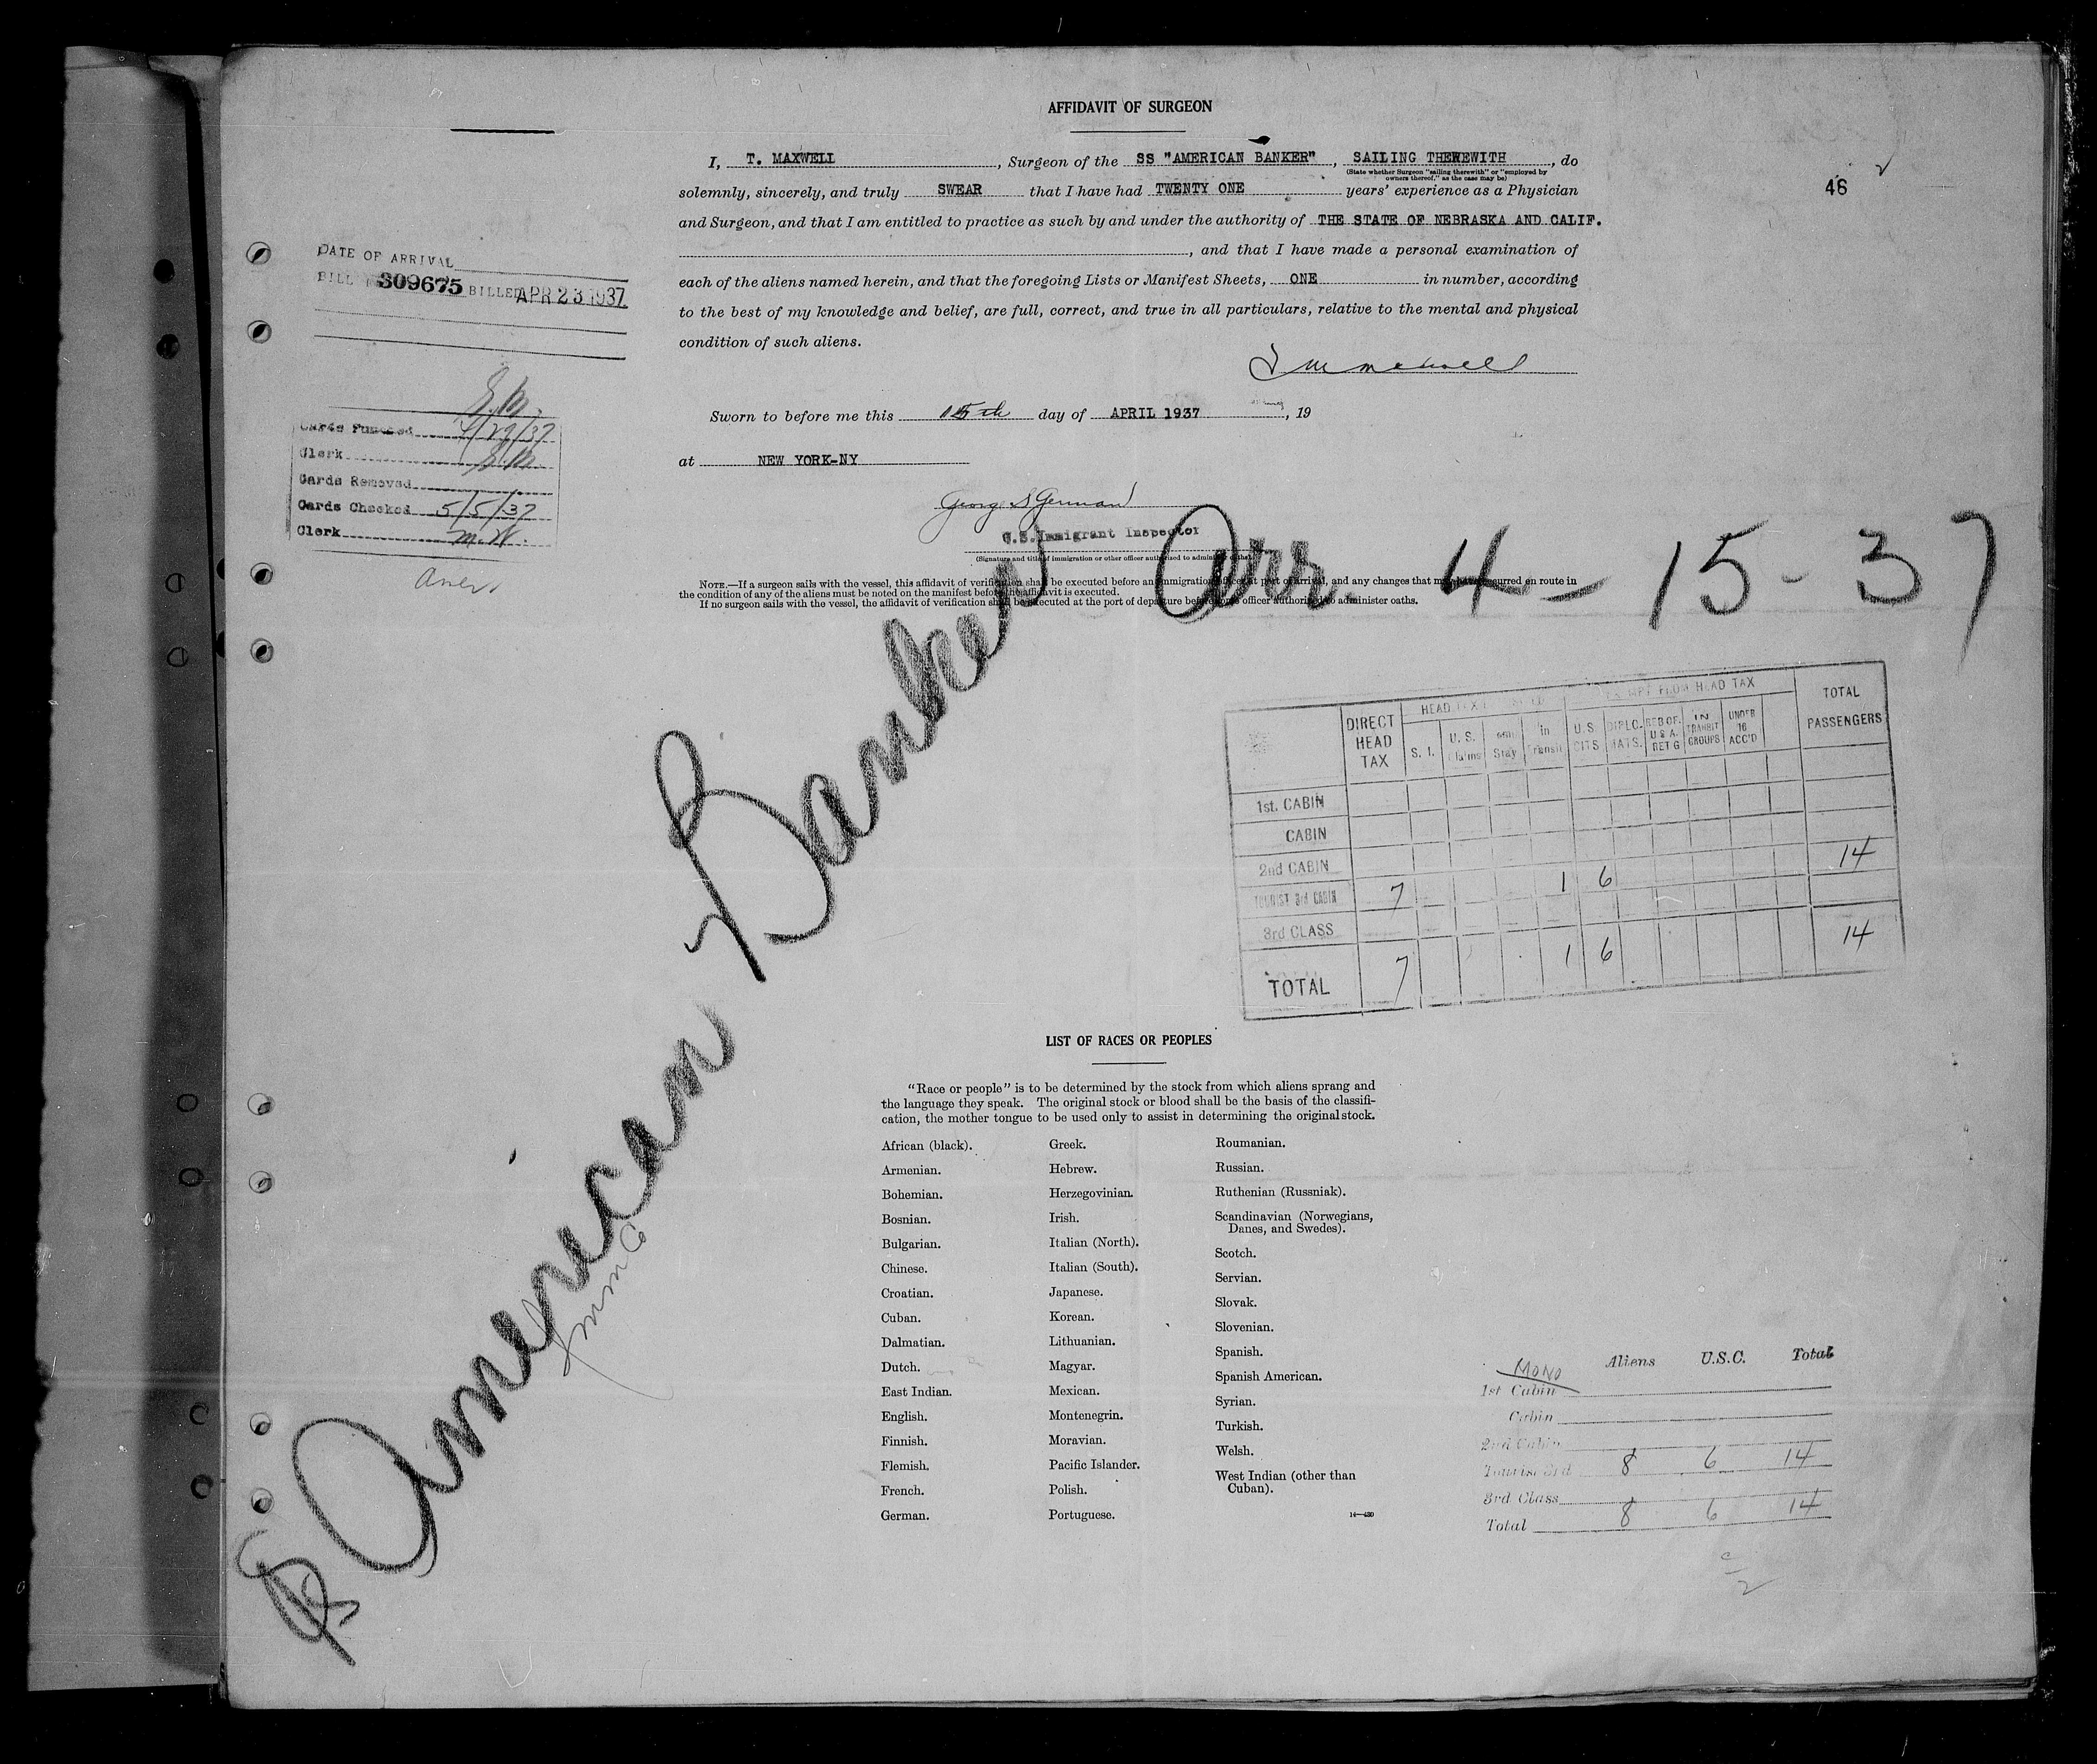 AFFIDAVIT OF SURGEON
I, T. MAXWELL, Surgeon of the SS "AMERICAN BANKER", SAILING THEREWITH, do
(State whether Surgeon "sailing therewith" or "employed by
owners thereof," as the case may be)
solemnly, sincerely, and truly SWEAR that I have had TWENTY ONE years' experience as a Physician
and Surgeon, and that I am entitled to practice as such by and under the authority of THE STATE OF NEBRASKA AND CALIF.
, and that I have made a personal examination of
each of the aliens named herein, and that the foregoing Lists or Manifest Sheets, ONE in number, according
to the best of my knowledge and belief, are full, correct, and true in all particulars, relative to the mental and physical
condition of such aliens.
Sworn to before me this 15th day of APRIL 1937, 19
at NEW YORK-NY
U.S. Immigrant Inspector
(Signature and title of immigration or other officer authorized to administer oaths)
NOTE.—If a surgeon sails with the vessel, this affidavit of verification shall be executed before an immigration officer at port of arrival, and any changes that may have occurred en route in
the condition of any of the aliens must be noted on the manifest before the affidavit is executed.
If no surgeon sails with the vessel, the affidavit of verification shall be executed at the port of departure before some officer authorized to administer oaths.
46
DATE OF ARRIVAL
BILL 309675 BILLED APR 23 1937
Cards Punched 4/29/37
Clerk
Cards Removed
Cards Checked 5/5/37
Clerk M.W.
SS American Banker Arr. 4-15-37
DIRECT HEAD TAX
S. I.
U. S. Claims
Stay
in Transit
EXEMPT FROM HEAD TAX
U.S. CITS
DIPLO-MATS.
RES OF. U S A. RET G
IN TRANSIT GROUPS
UNDER 16 ACC'D
TOTAL PASSENGERS
1st. CABIN
CABIN
2nd CABIN
TOURIST 3rd CABIN 7 1 6 14
3rd CLASS
TOTAL 7 1 6 14
LIST OF RACES OR PEOPLES
"Race or people" is to be determined by the stock from which aliens sprang and
the language they speak. The original stock or blood shall be the basis of the classifi-
cation, the mother tongue to be used only to assist in determining the original stock.
African (black).
Armenian.
Bohemian.
Bosnian.
Bulgarian.
Chinese.
Croatian.
Cuban.
Dalmatian.
Dutch.
East Indian.
English.
Finnish.
Flemish.
French.
German.
Greek.
Hebrew.
Herzegovinian.
Irish.
Italian (North).
Italian (South).
Japanese.
Korean.
Lithuanian.
Magyar.
Mexican.
Montenegrin.
Moravian.
Pacific Islander.
Polish.
Portuguese.
Roumanian.
Russian.
Ruthenian (Russniak).
Scandinavian (Norwegians,
Danes, and Swedes).
Scotch.
Servian.
Slovak.
Slovenian.
Spanish.
Spanish American.
Syrian.
Turkish.
Welsh.
West Indian (other than
Cuban).
14—430
MONO Aliens U.S.C. Total
1st Cabin
Cabin
2nd Cabin
Tourist 3rd 8 6 14
3rd Class
Total 8 6 14